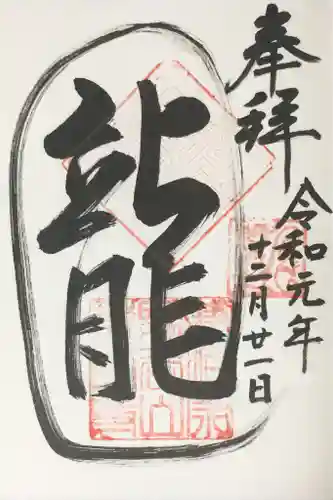 奉拝
令和元年
十二月廿一日
龍